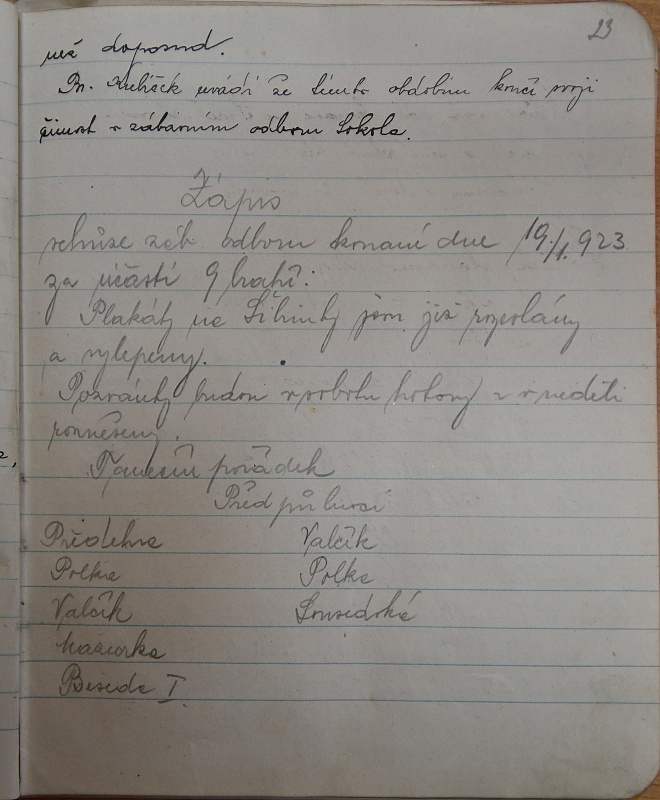 23
než doposud.
Br. Kubíček uvádí že tímto obdobím končí svoji
činnost v zábavním odboru Sokola.
Zápis
schůze záb. odboru konané dne 19./I. 923
za účasti 9 bratří:
Plakáty na Šibřinky jsou již rozeslány
a vylepeny.
Pozvánky budou v sobotu hotovy a v neděli
rozneseny.
Taneční pořádek
Před půlnocí
Předehra Valčík
Polka Polka
Valčík Sousedská
Mazurka
Beseda I.